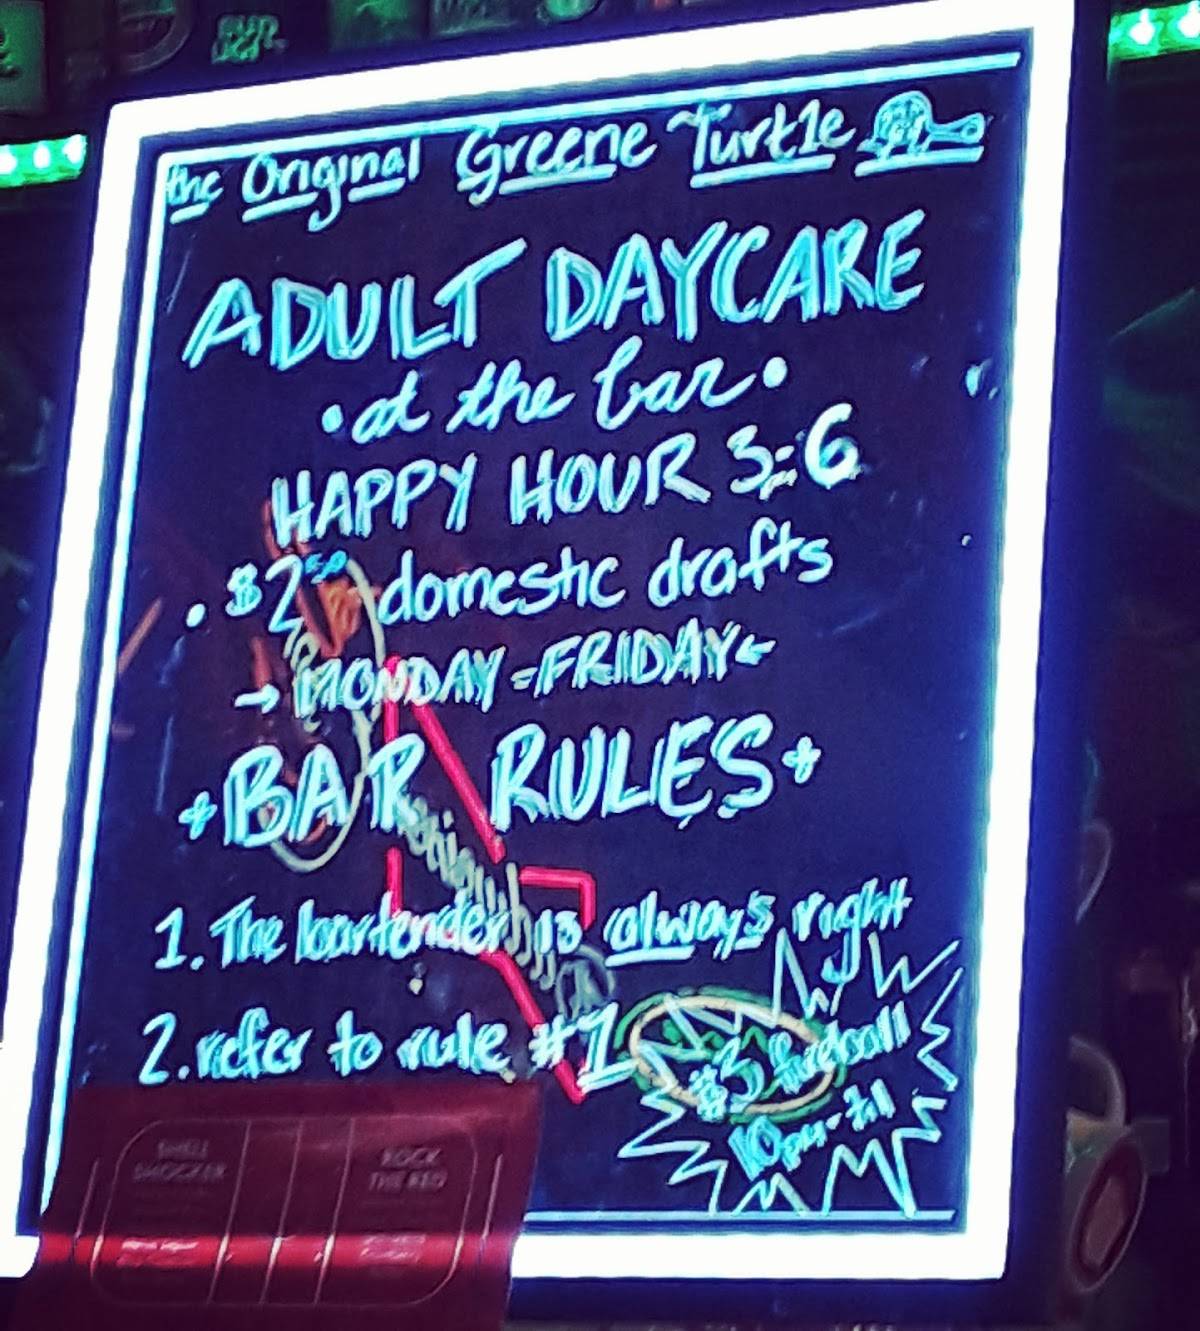 the Original Greene Turtle
ADULT DAYCARE
• at the bar •
HAPPY HOUR 3-6
• $2.50 domestic drafts
→ MONDAY - FRIDAY ←
+ BAR RULES +
1. The bartender is always right
2. refer to rule #1
$3 fireball
10pm-til
SHELL SHOCKER
ROCK THE RED